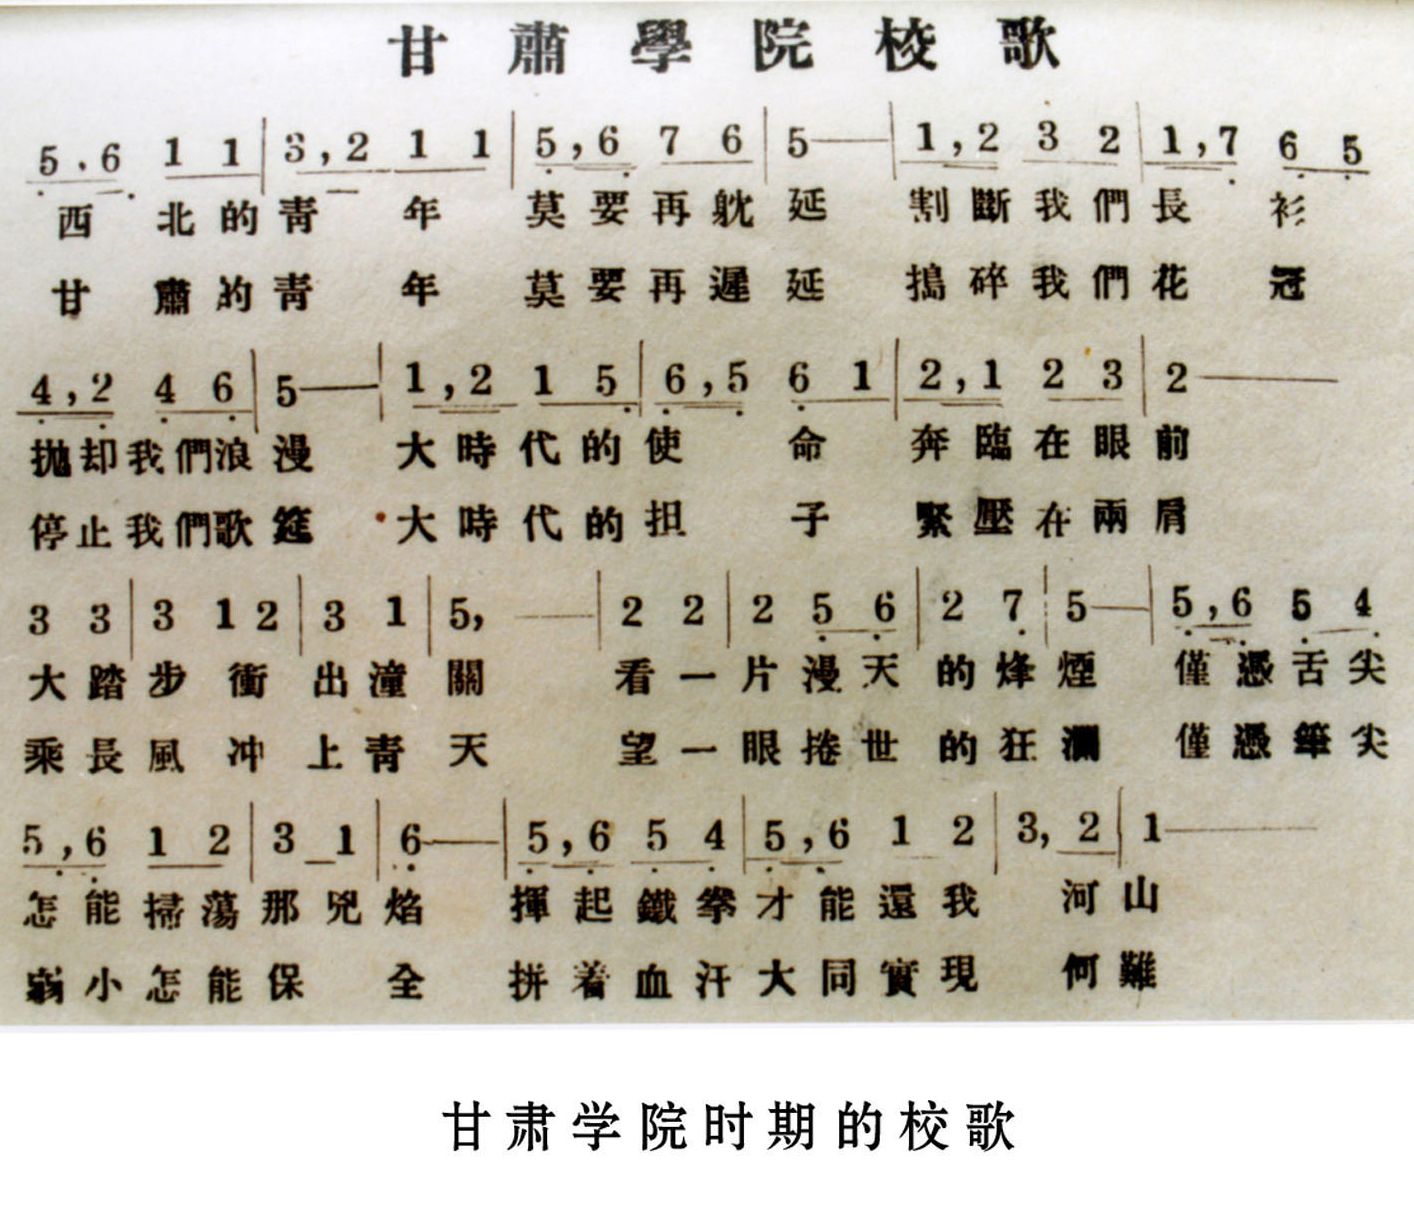 甘肅學院校歌
5.6 1 1 | 3,2 1 1 | 5,6 7 6 | 5— | 1,2 3 2 | 1,7 6 5
西北的青年 莫要再躭延 割斷我們長衫
甘肅的青年 莫要再遲延 搗碎我們花冠
4,2 4 6 | 5— | 1,2 1 5 | 6,5 6 1 | 2,1 2 3 | 2—
拋却我們浪漫 大時代的使命 奔臨在眼前
停止我們歌筵 大時代的担子 緊壓在兩肩
3 3 | 3 1 2 | 3 1 | 5,— | 2 2 | 2 5 6 | 2 7 | 5— | 5,6 5 4
大踏步衝出潼關 看一片漫天的烽煙 僅憑舌尖
乘長風冲上青天 望一眼捲世的狂瀾 僅憑筆尖
5,6 1 2 | 3 1 | 6— | 5,6 5 4 | 5,6 1 2 | 3,2 | 1—
怎能掃蕩那兇焰 揮起鐵拳才能還我河山
弱小怎能保全 拼着血汗大同實現何難
甘肃学院时期的校歌